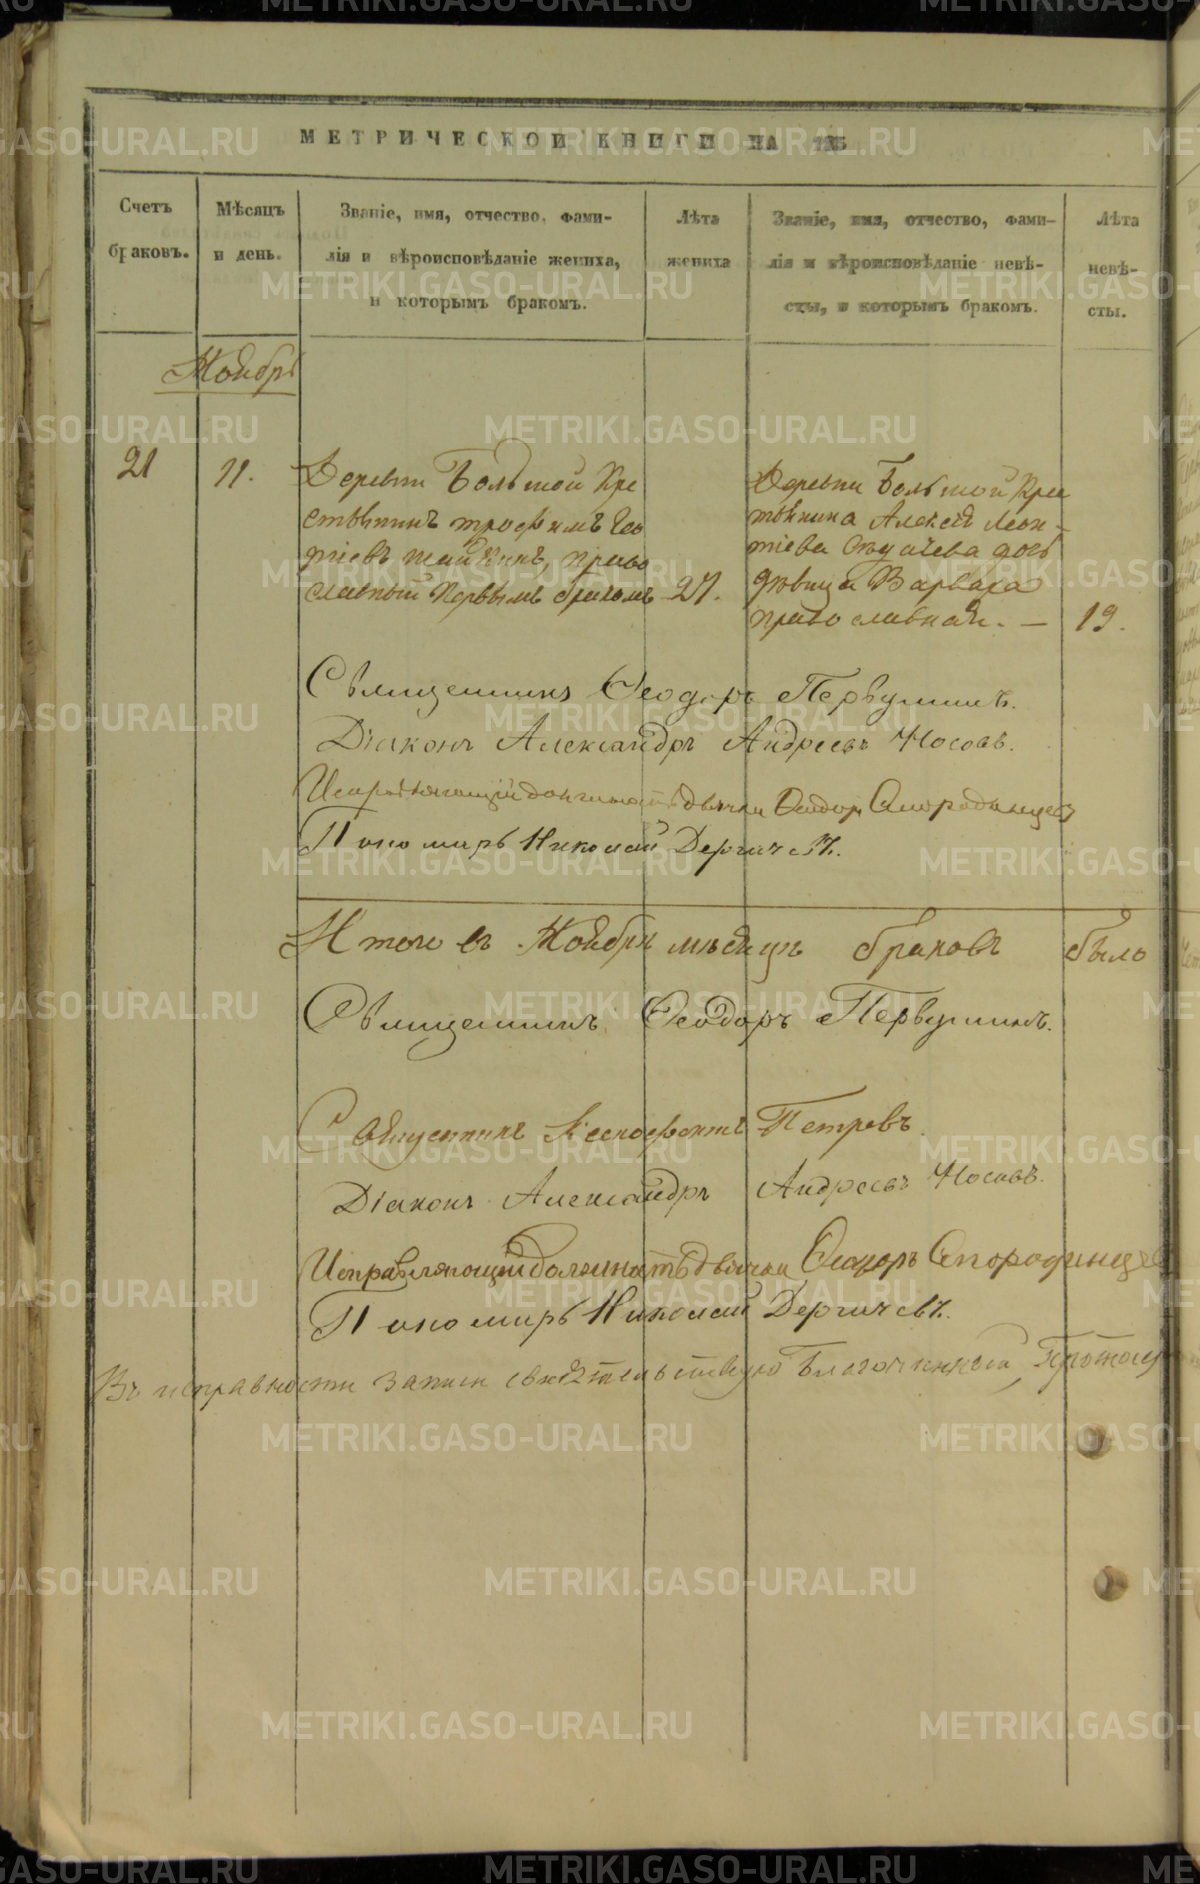 МЕТРИЧЕСКОЙ КНИГИ НА 18
Счетъ браковъ.
Мѣсяцъ и день.
Званіе, имя, отчество, фами-
лія и вѣроисповѣданіе жениха,
и которымъ бракомъ.
Лѣта жениха
Званіе, имя, отчество, фами-
лія и вѣроисповѣданіе невѣ-
сты, и которымъ бракомъ.
Лѣта невѣ-
сты.
Ноябрь
21
11.
Деревни Большой Кре
стьянинъ Трофимъ
православный первымъ бракомъ
27.
Деревни Большой Крес
тьянина Алексѣя Леон-
тіева дочь
дѣвица Варвара
православная. —
19.
Священникъ Ѳеодоръ Первушинъ.
Діаконъ Александръ Андреевъ Носовъ.
Исправляющій должность дьячка Ѳеодоръ Смородинцевъ
Пономарь Николай Дергачевъ.
Итого въ Ноябрѣ мѣсяцѣ браковъ было
Священникъ Ѳеодоръ Первушинъ.
Священникъ Ксенофонтъ Петровъ
Діаконъ Александръ Андреевъ Носовъ.
Исправляющій должность дьячка Ѳеодоръ Смородинцев
Пономарь Николай Дергачевъ.
Въ исправности записи свидѣтельствую Благочинный, Протоіер
METRIKI.GASO-URAL.RU